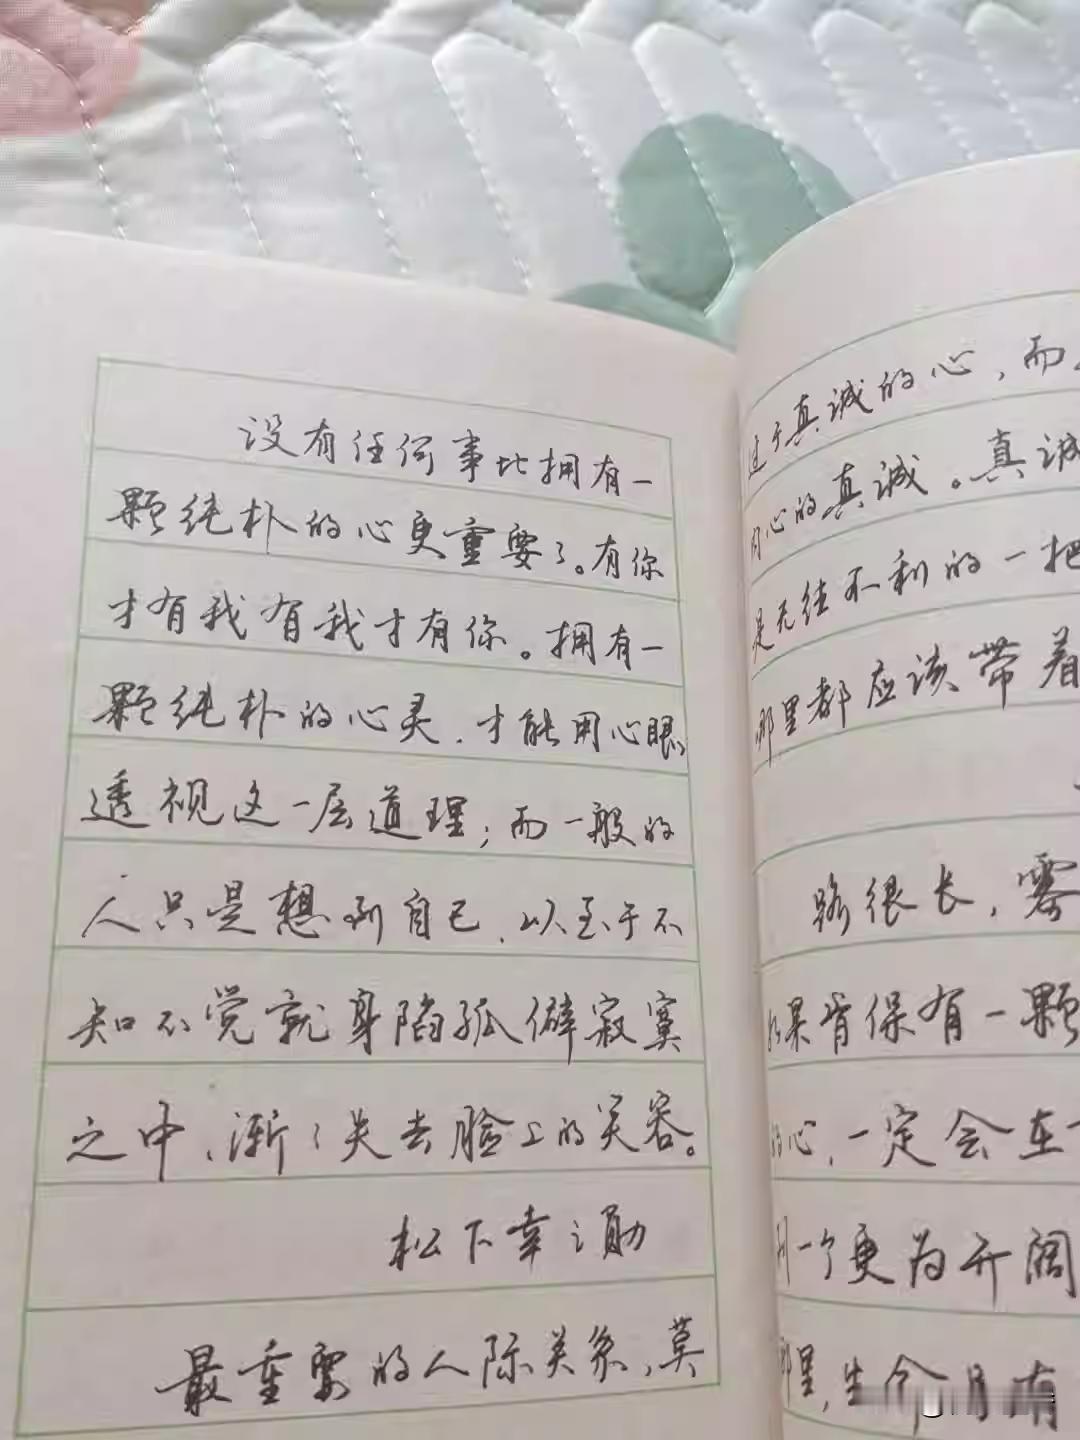 没有任何事比拥有一
颗纯朴的心更重要了。有你
才有我有我才有你。拥有一
颗纯朴的心灵，才能用心眼，
透视这一层道理；而一般的
人只是想到自己，以至于不
知不觉就身陷孤僻寂寞
之中，渐〻失去脸上的笑容。
松下幸之助
最重要的人际关系，莫
过于真诚的心，而
内心的真诚。真诚
是无往不利的一把
哪里都应该带着
路很长，雾
如果肯保有一颗
的心，一定会在
用一个更为开阔
那里，生命